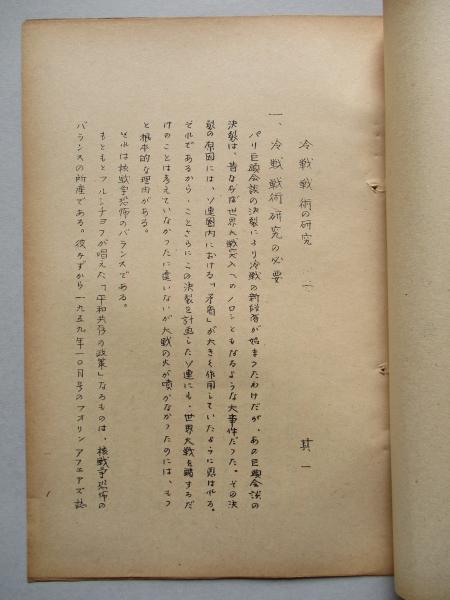 冷戦戦術の研究 其一
一、冷戦戦術研究の必要
パリ巨頭会談の決裂により冷戦の新段階が始まつたわけだが、あの巨頭会談の
決裂は、昔ならば世界大戦突入へのノロシともなるような大事件だつた。その決
裂の原因には、ソ連圏内における「矛盾」が大きく作用していたように思はれる。
それであるから、ことさらにこの決裂を計画したソ連にも、世界大戦を賭するだ
けのことは考えていなかつたに違いないが大戦の火が噴かなかつたのには、もつ
と根本的な理由がある。
それは核戦争恐怖のバランスである。
もともとフルシチヨフが唱えた「平和共存の政策」なるものは、核戦争恐怖の
バランスの所産である。彼みずから一九五九年一〇月号のフオリン アフエアズ誌